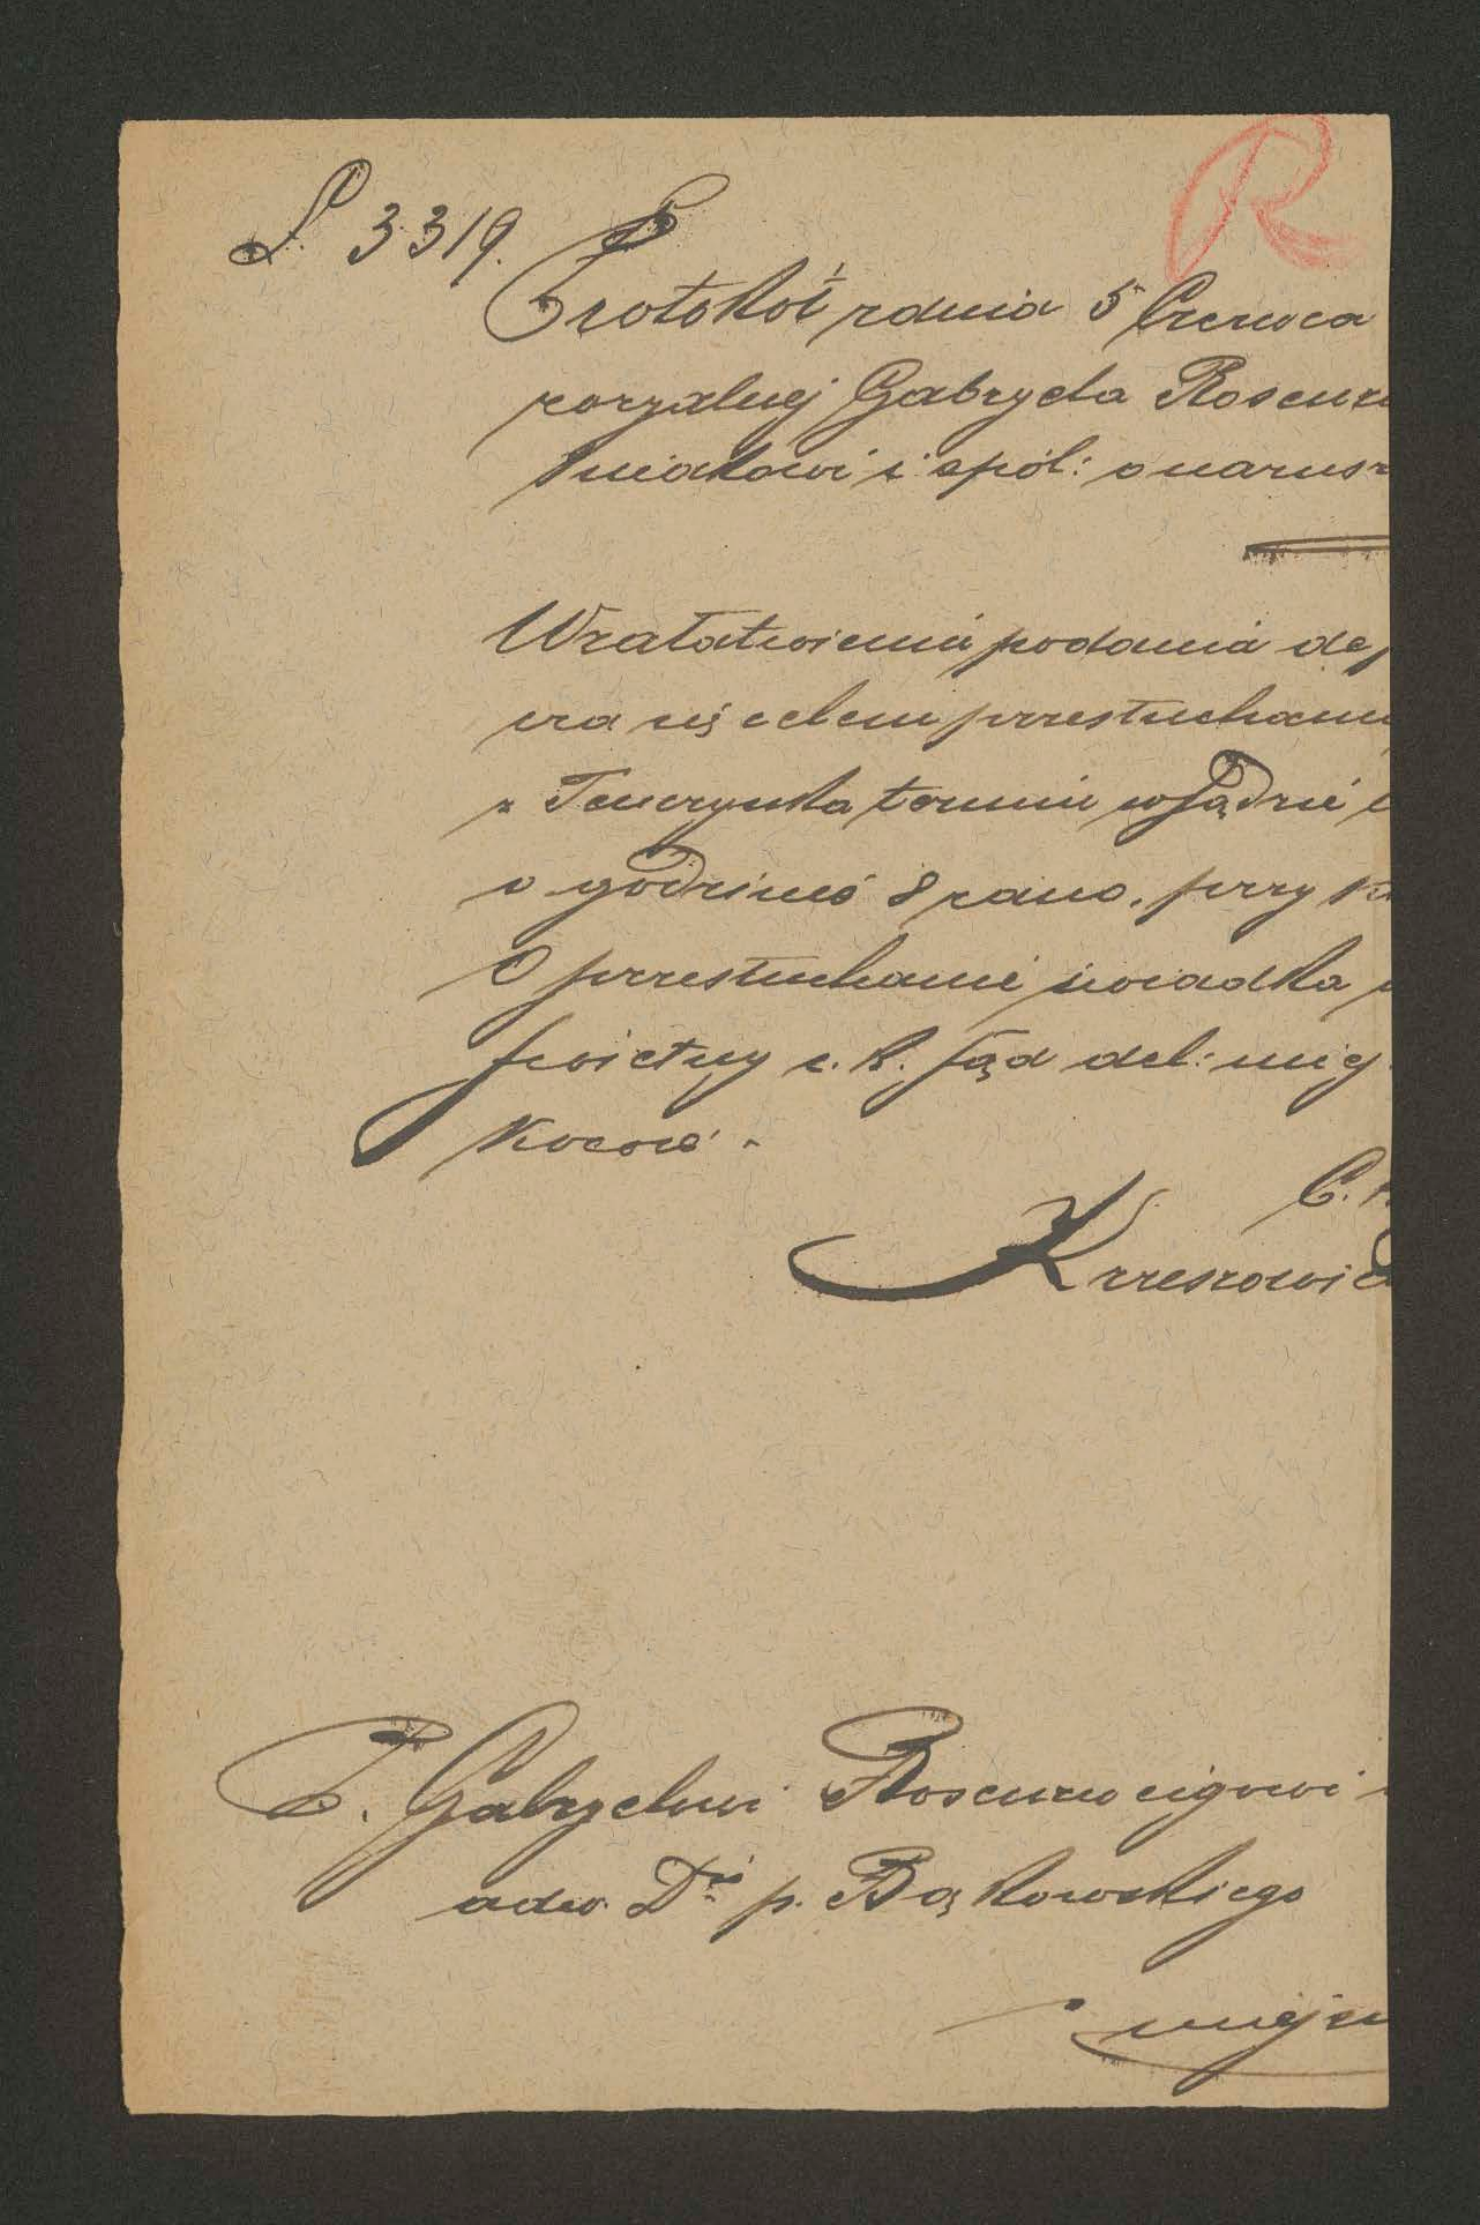 R
L. 3319.
Protokół z dnia 5 Czerwca
rozgalnej Gabryela Rosenzw
śniakowi i spól: o narusz
W załatwieniu podania de
cza się celem przesłuchani
z Tenczynka termin w Sądzie
o godzinie 8 rano, przy
O przesłuchanie świadka
świetny c. k. Sąd del: miej
Kocow
C. k.
Krzeszowic
P. Gabryelowi Rosenzweigowi
adw. Dra p. Bąkowskiego
miejsc